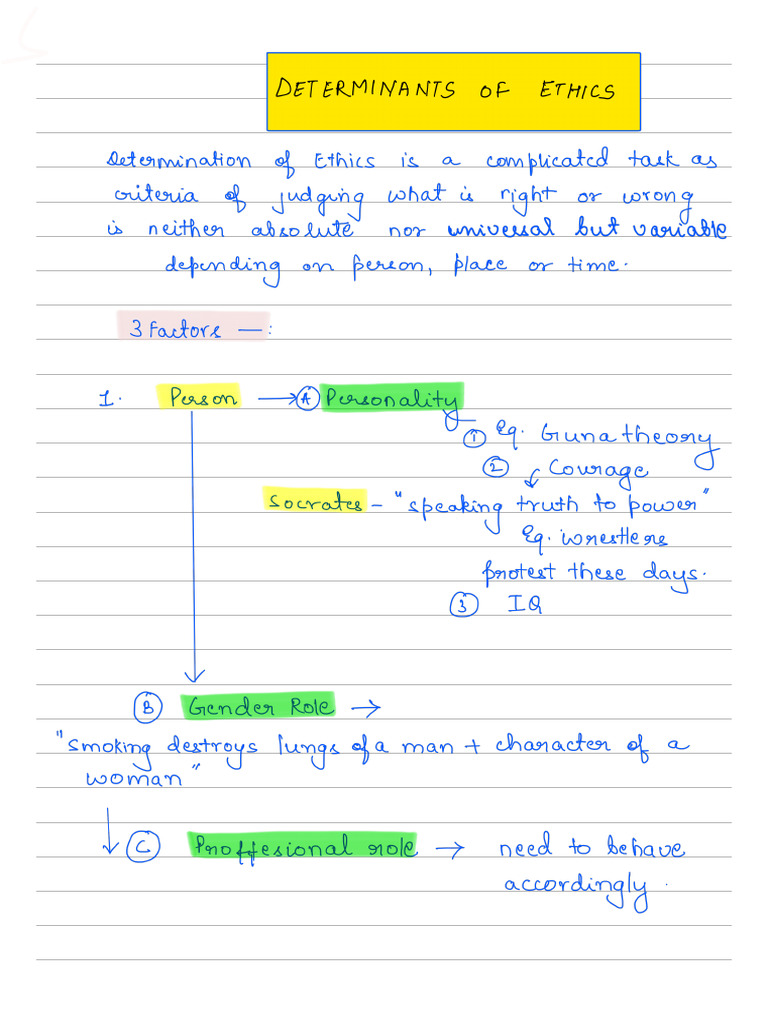 DETERMINANTS OF ETHICS
Determination of Ethics is a complicated task as
criteria of judging what is right or wrong
is neither absolute nor universal but variable
depending on person, place or time.
3 Factors —:
1. Person → A Personality
1 Eg. Guna theory
2 Courage
Socrates - "speaking truth to power"
Eg. wrestlers
protest these days.
3 IQ
B Gender Role →
"smoking destroys lungs of a man + character of a
woman"
C Proffesional role → need to behave
accordingly.